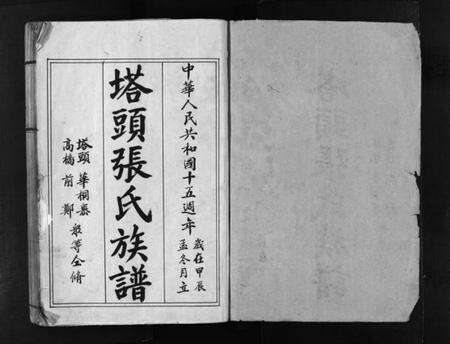 中華人民共和國十五週年
歲在甲辰
孟冬月立
塔頭張氏族譜
塔頭 華桐泰
高橋前鄭
敬等仝脩